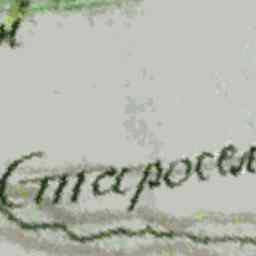 Старосел